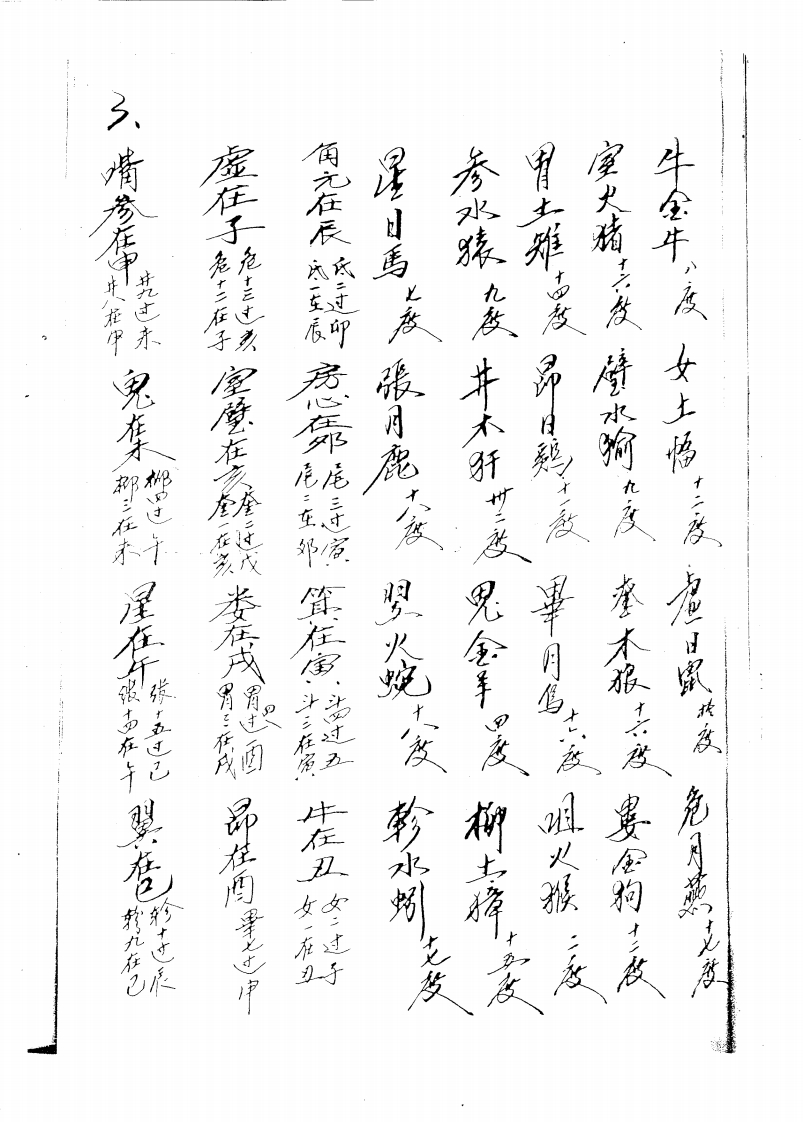 牛金牛八度 女土蝠十二度 虚日鼠拾度 危月燕十七度
室火猪十六度 壁水㺄九度 奎木狼十六度 娄金狗十二度
胃土雉十四度 昴日鷄十一度 畢月烏十六度 咀火猴二度
参水猿九度 井木犴卅二度 鬼金羊四度 柳土獐十五度
星日馬七度 張月鹿十八度 翌火蛇十八度 軫水蚓十七度
角亢在辰 氐二过卯 氐一在辰 房心在卯 尾三过寅 尾二在卯 箕在寅 斗四过丑 斗三在寅 牛在丑 女二过子 女一在丑
虚在子 危十三过亥 危十二在子 室壁在亥 奎二过戌 奎一在亥 娄在戌 胃四过酉 胃三在戌 昴在酉 畢七过申
嘴参在申 井九过未 井八在申 鬼在未 柳四过午 柳三在未 星在午 張十五过巳 張十四在午 翼在巳 軫十过辰 軫九在巳
3、